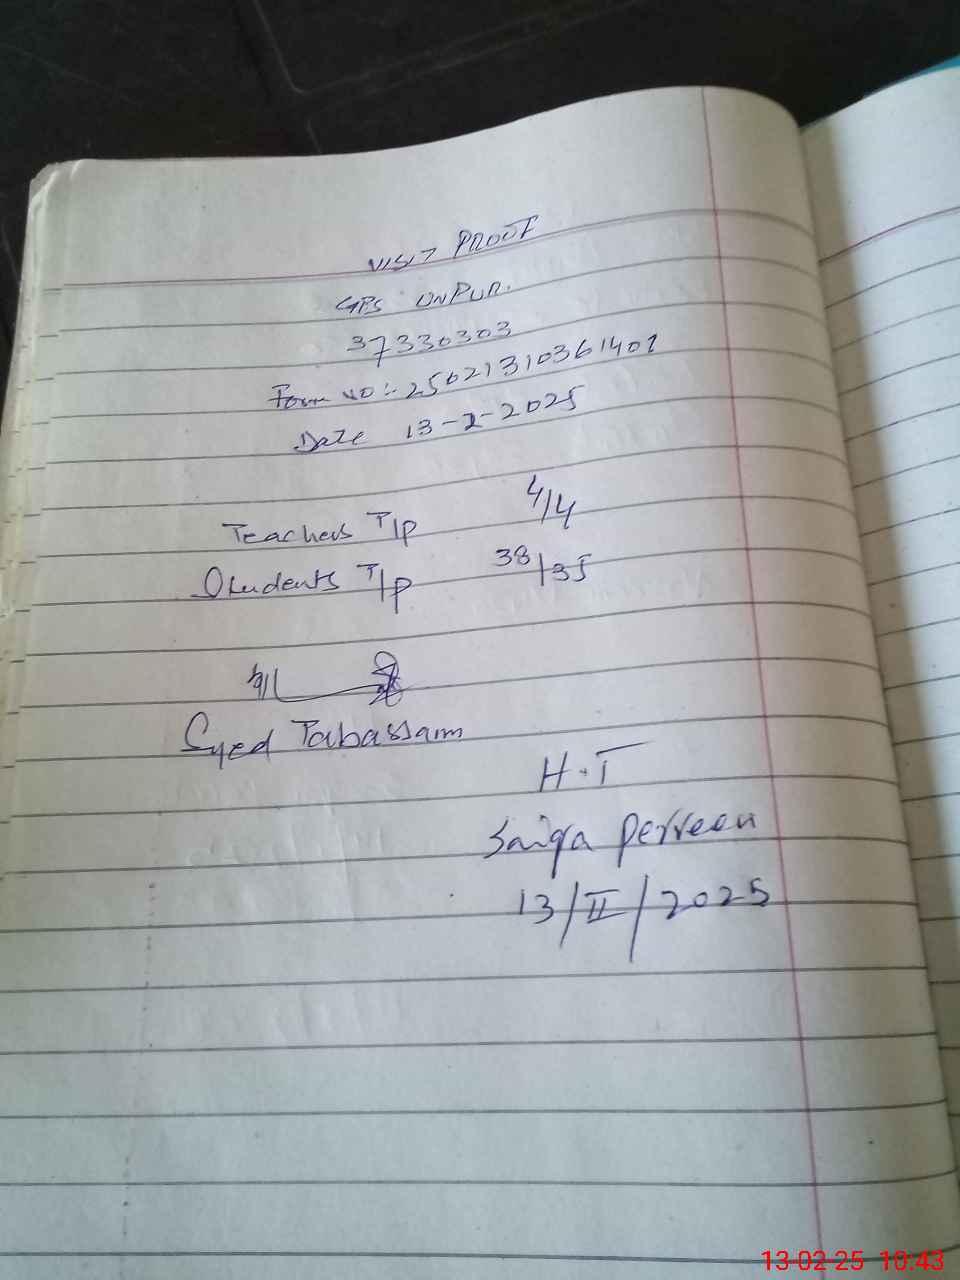 VISIT PROOF
GPS UNPUR.
37330303
Form NO:- 25021310361401
Date 13-2-2025
Teachers T/P 4/4
Students T/P 38/35
Syed Tabassam
H.T
Saiqa perveen
13/II/2025
13-02-25 10:43